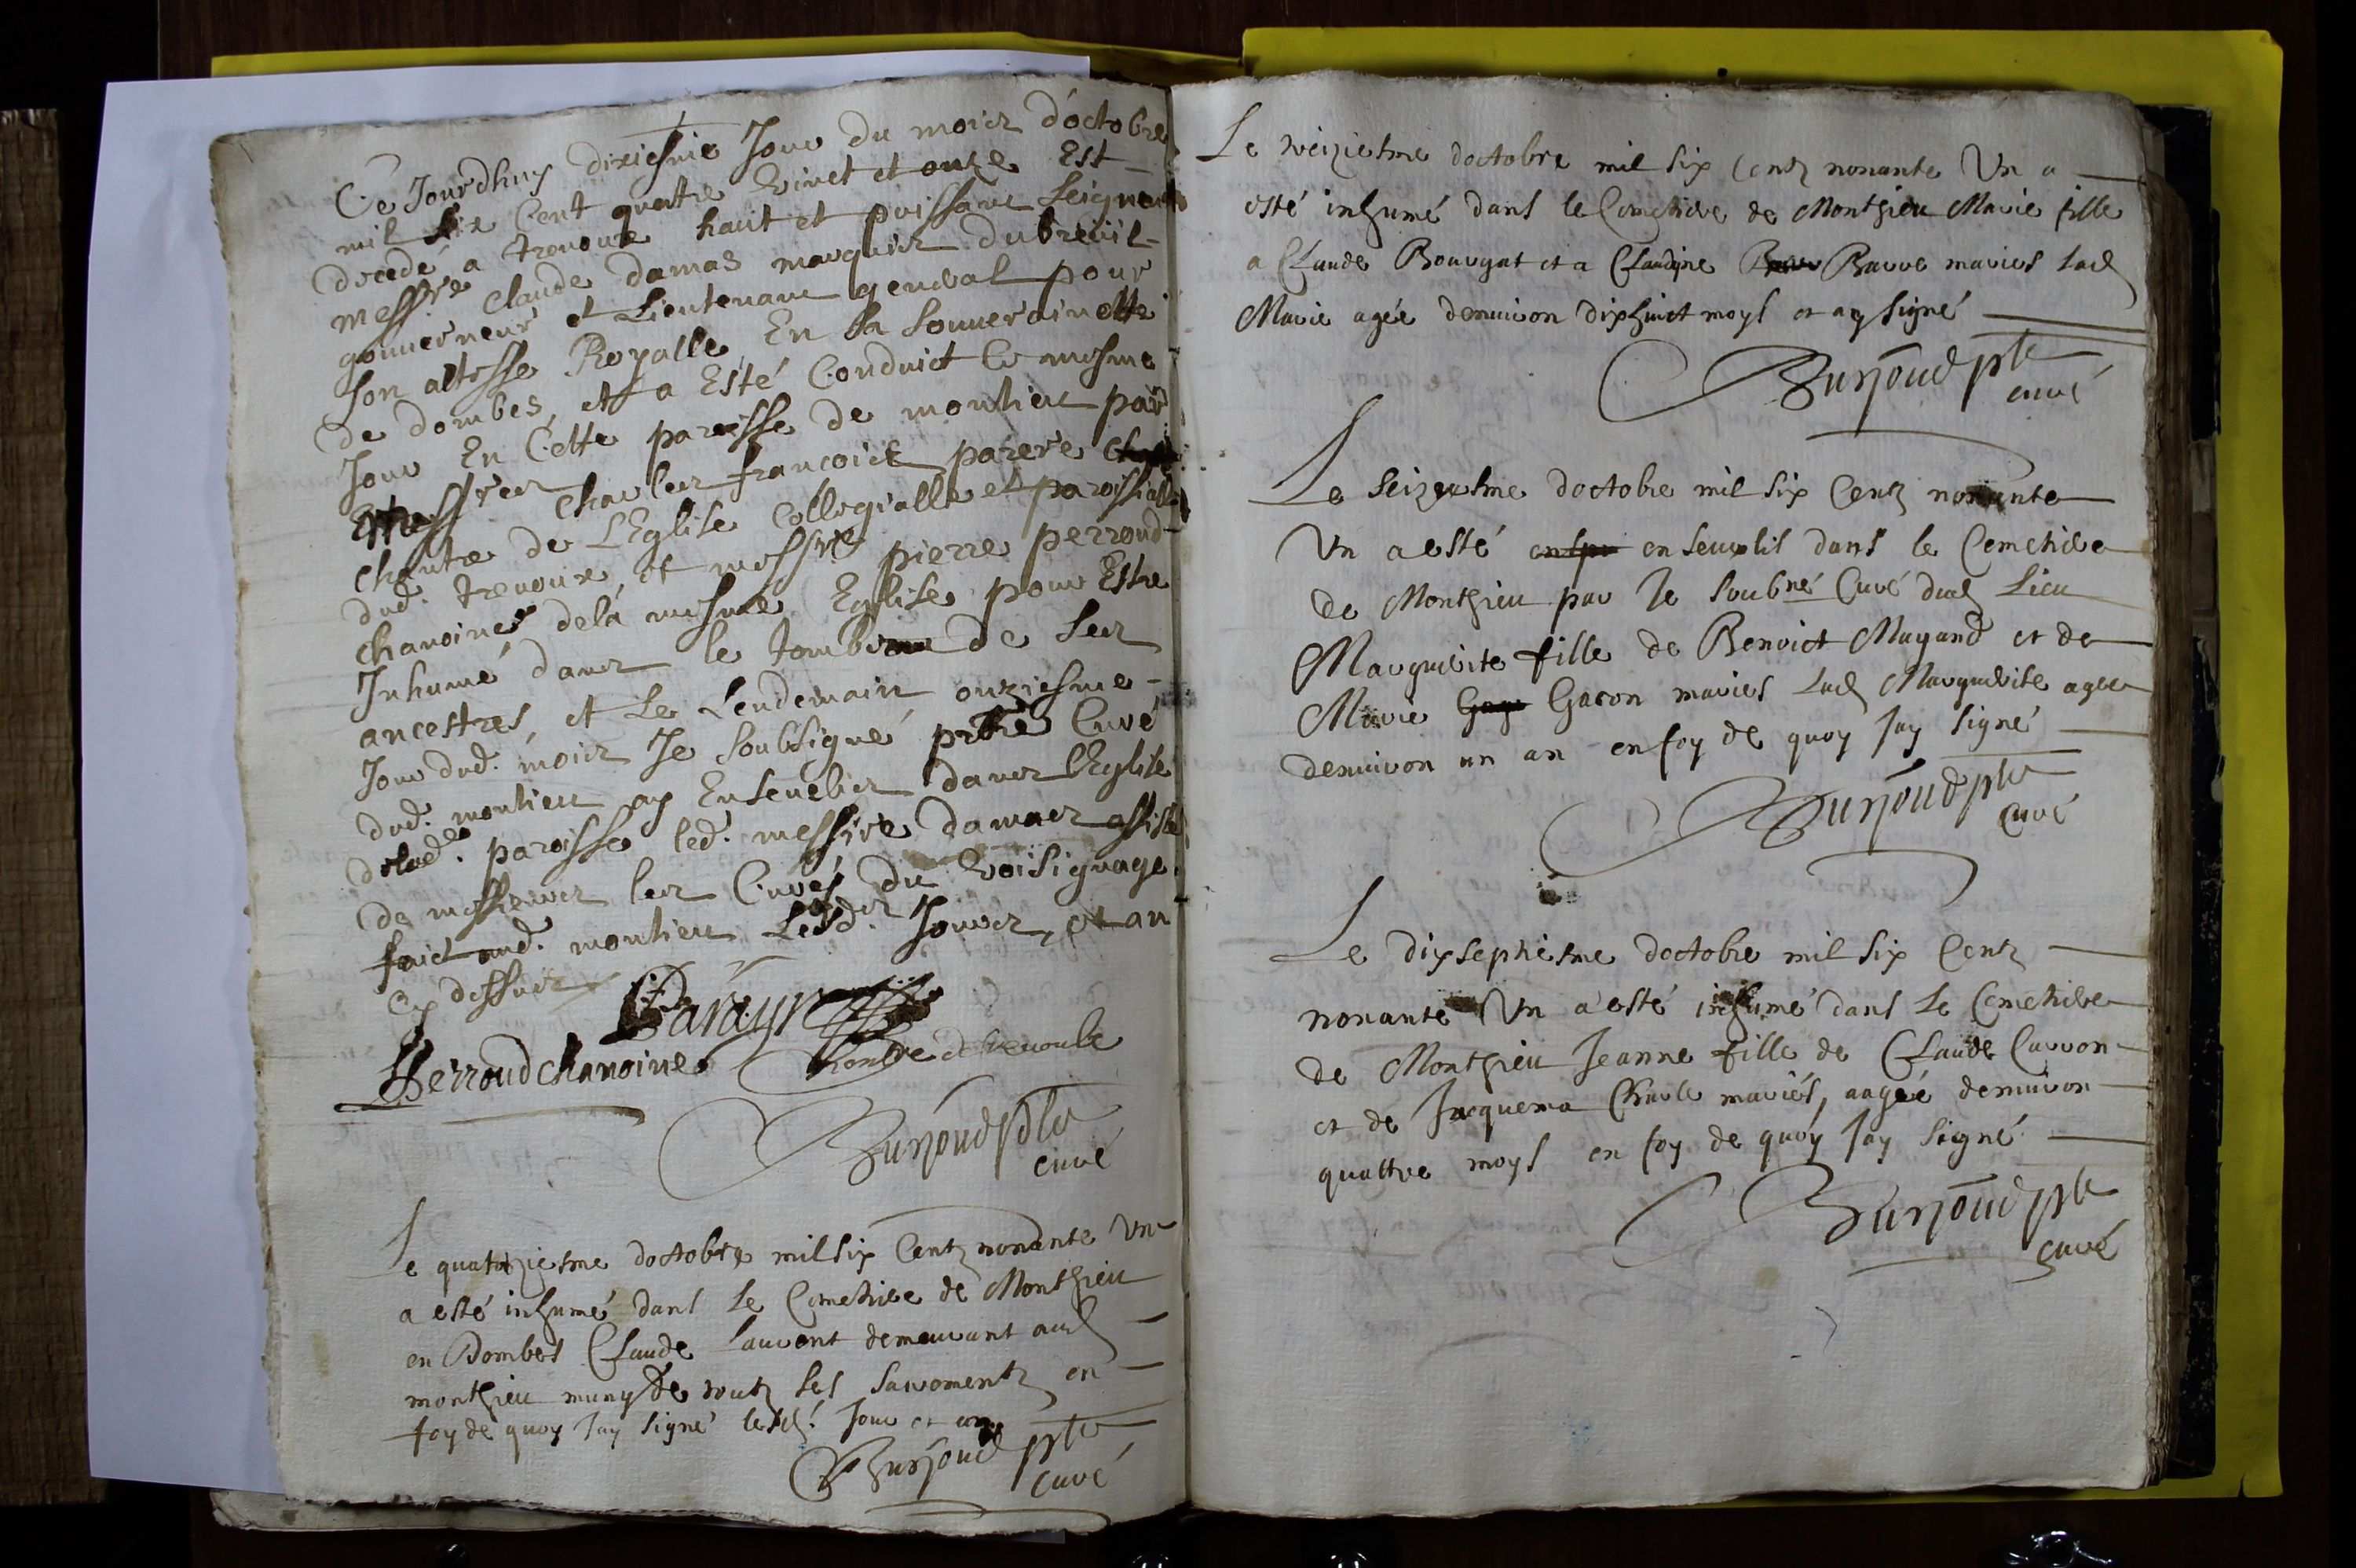 Ce Jourdhuy dixiesme Jour du moics d'octobre
mil six Cent quatre vinct et onze Est
decedé a treuoux haut et puissant seigneur
messire Claude damas marquics dubreüil
gouuerneur et Lieutenant general pour
son altesse Royalle En sa souueraineté
de dombes, et a Esté Conduict le mesme
Jour En Cette paroisse de montieu par
messires charles francoics parere
chantre de L'Eglise Collegialle et paroissialle
dud. treuoux, et messire pierre perroud
chanoine dela mesme Eglise pour Estre
Inhumé dans le tombeau de ses
ancestres, et Le Lendemain onziesme
Jour dud. moics Je soubsigné prbre Curé
dud. montieu ay Enseuelics dans l'Eglise
delad. paroisse led. messire damas assisté
de messieurs les Curés du voisignage
faict aud. montieu Lesd. Jours, et an
cy dessus
Parayre
Perroud chanoine Chantre de treuoulx
Burjoud pbre
curé
Le quatorziesme doctobre mil six Centz nonante Un
a esté inhumé dans le Cimetiere de Monthieu
en Dombes Claude Laurent demeurant aud
monthieu muny de toutz les sacrementz en
foy de quoy Jay signé lesd. Jour et an
Burjoud pbre
curé
Le treiziesme doctobre mil six Centz nonante Un a
esté inhumé dans le Cimetiere de Monthieu Marie fille
a Claude Bourgat et a Claudine Barre mariés lad
Marie agée denuiron dixhuict moys et ay signé
Burjoud pbre
curé
Le seiziesme doctobre mil six Centz nonante
Un a esté enseuelis dans le Cemetiere
de Monthieu par Je soubné Curé dud Lieu
Marguerite fille de Benoict Magand et de
Marie Gacon mariés lad Marguerite agee
denuiron un an en foy de quoy Jay signé
Burjoud pbre
curé
Le dixseptiesme doctobre mil six Centz
nonante Un a esté inhumé dans le Cemetiere
de Monthieu Jeanne fille de Claude Carron
et de Jacquema Charle mariés, aagée denuiron
quattre moys en foy de quoy Jay signé
Burjoud pbre
curé